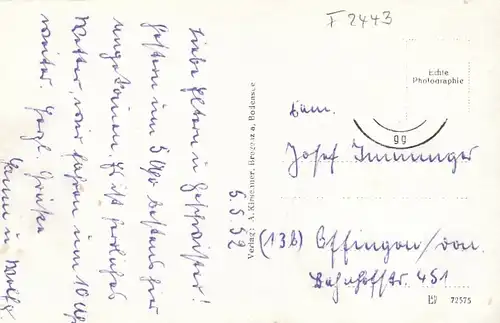 F 2443
Liebe Eltern u. Geschwister!
Gestern um 5 Uhr bestens hier
angekommen. Es ist herrliches
Wetter, wir fahren um 10 Uhr
weiter. Herzl. Grüße
u. Wolfg.
5.5.52
Verlag: A. Kirschner, Bregenz a. Bodensee
Echte
Photographie
99
Fam.
Josef Imminger
(13b) Offingen/Don.
Bahnhofstr. 451
72575